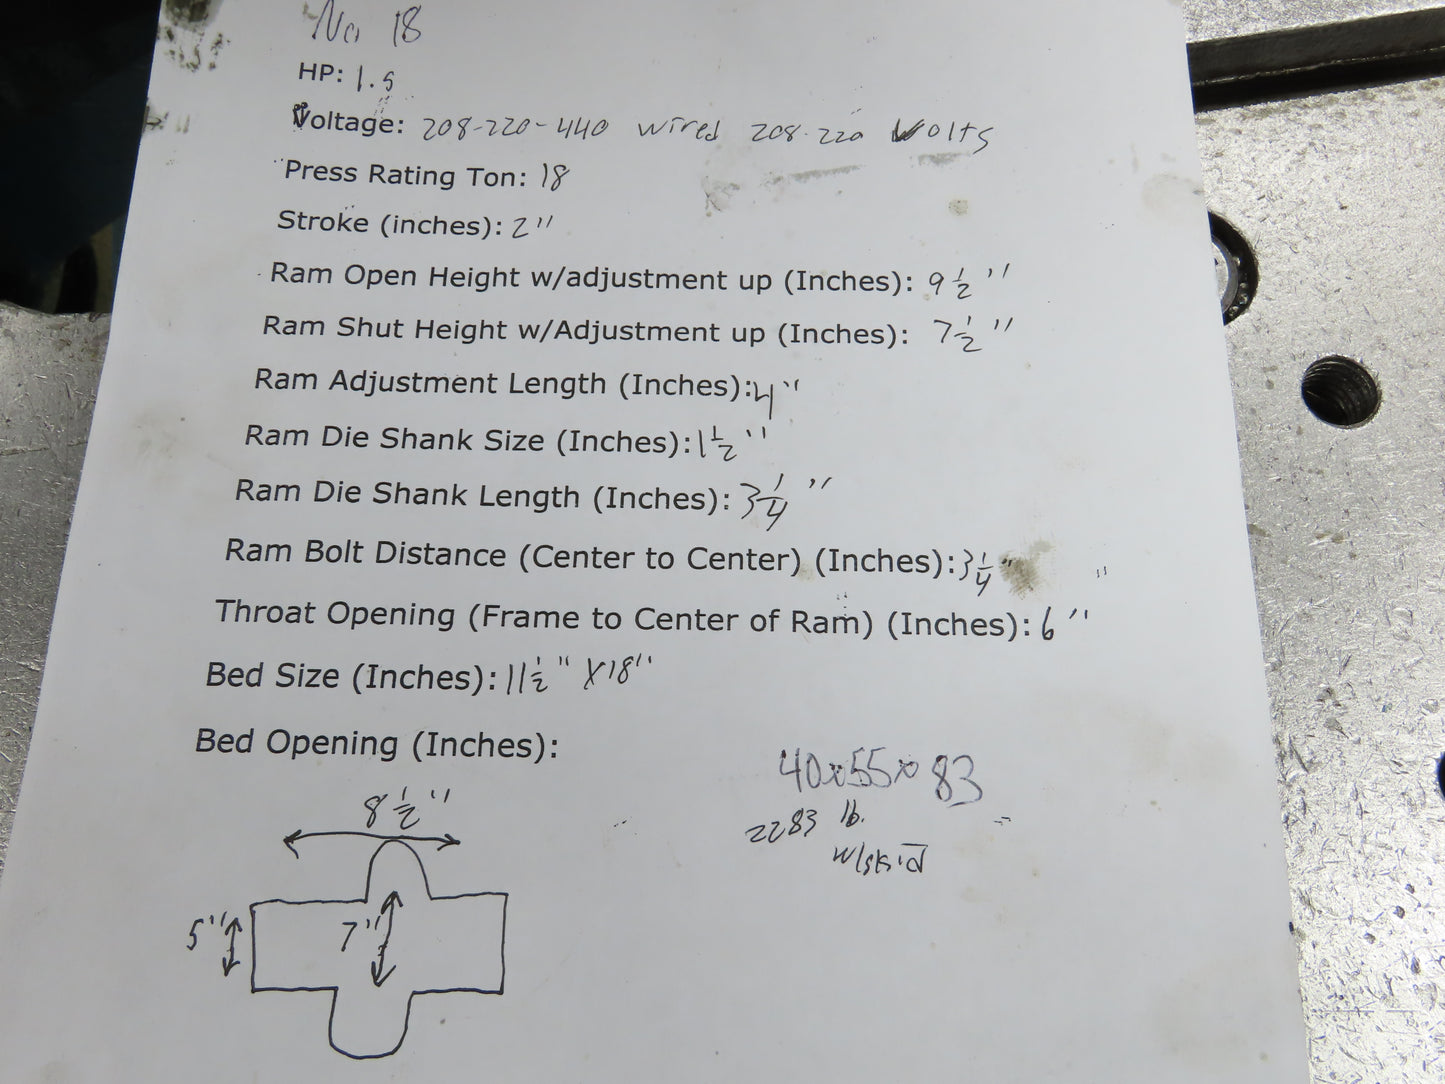 No 18
HP: 1.5
Voltage: 208-220-440 wired 208-220 Volts
Press Rating Ton: 18
Stroke (inches): 2"
Ram Open Height w/adjustment up (Inches): 9 1/2"
Ram Shut Height w/Adjustment up (Inches): 7 1/2"
Ram Adjustment Length (Inches): 4"
Ram Die Shank Size (Inches): 1 1/2"
Ram Die Shank Length (Inches): 3 1/4"
Ram Bolt Distance (Center to Center) (Inches): 3 1/4" "
Throat Opening (Frame to Center of Ram) (Inches): 6"
Bed Size (Inches): 11 1/2" X 18"
Bed Opening (Inches):
40x55x83
2283 lb.
w/skid
8 1/2"
5" 7"